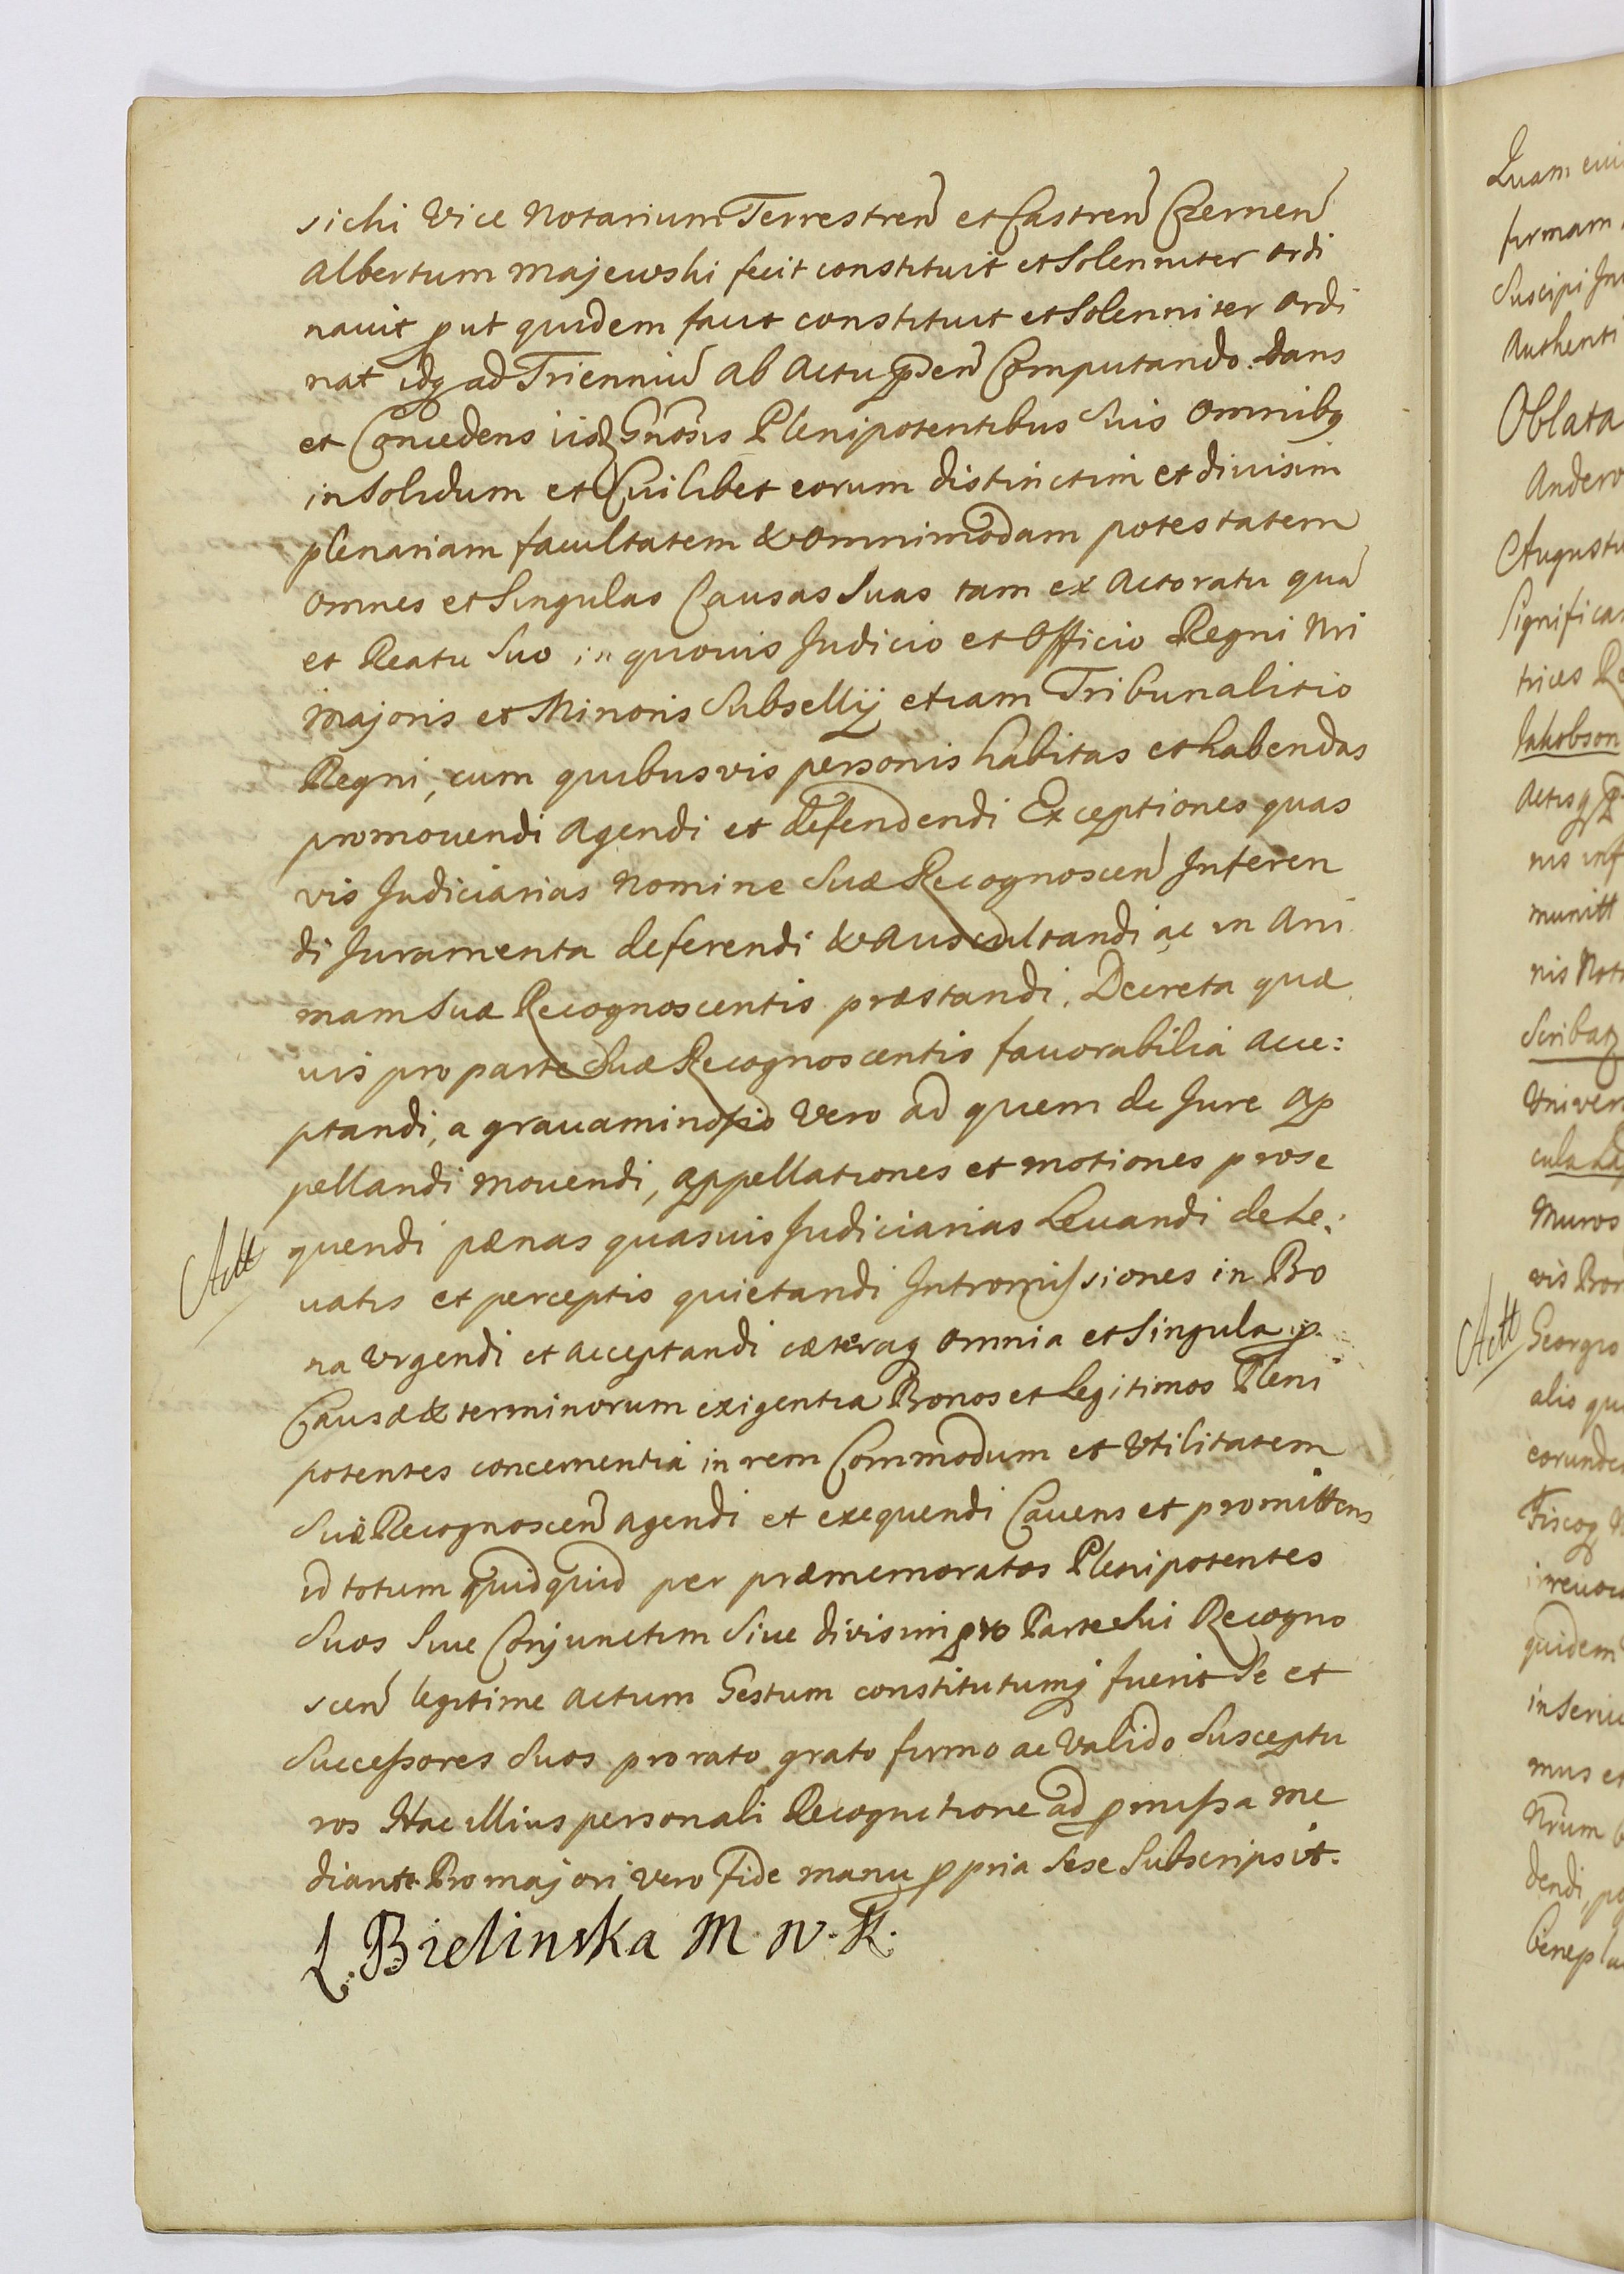 sicki Vice Notarium Terrestren et Castren Czernen
Albertum Majewski fecit constituit et Solenniter ordi
navit put quidem facit constituit et Solenniter ordi
nat idq ad Trienniu ab Actu pnen Computando. Dans
et Concedens iisd Gnosis Plenipotentibus Suis Omnibq
in Solidum et Cuilibet eorum distinctim et divisim
plenariam facultatem & omnimodam potestatem
omnes et Singulas Causas Suas tam ex Actoratu qua
et Reatu Suo in quovis Judicio et Officio Regni Nri
Majoris et Minoris Subsellij etiam Tribunalitio
Regni, cum quibusvis personis habitas et habendas
promovendi Agendi et defendendi Exceptiones quas
vis Judiciarias Nomine Suæ Recognoscen Inferen
di Juramenta deferendi & Auscultandi ac in Ani
mam Suæ Recognoscentis præstandi. Decreta quæ
uis pro parte Suæ Recognoscentis favorabilia Acce:
ptandi, a gravaminosio Vero ad quem de Jure Ap
pellandi Movendi, Appellationes et motiones prose
quendi pænas quasuis Judiciarias Levandi de Le:
Actt
vatis et perceptis quietandi Intromissiones in Bo
na Urgendi et Acceptandi cæteraq omnia et Singula p
Causæ & terminorum exigentia Bonos et Legitimos Pleni
potentes concernentia in rem Commodum et Utilitatem
Suæ Recognoscen agendi et exequendi Cavens et promittens
id totum quidquid per præmemoratos Plenipotentes
Suos Sive Conjunctim Sive divisim pro Parte Sui Recogno
scen legitime Actum Gestum constitutumq fuerit Se et
Successores Suos pro rato grato firmo ac Valido Susceptu
ros Hac illius personali Recognitione ad pmissa me
diante. Pro majori vero fide manu ppria Sese Subscripsit.
L. Bielinska M. N. K.
firmam
Authenti
Oblata
Jakobson
nis inf
munitt
nis Nota
Muros
vis Bon
Actt
Georgio
alio qu
quidem
mus et
Nrum
dendi, po